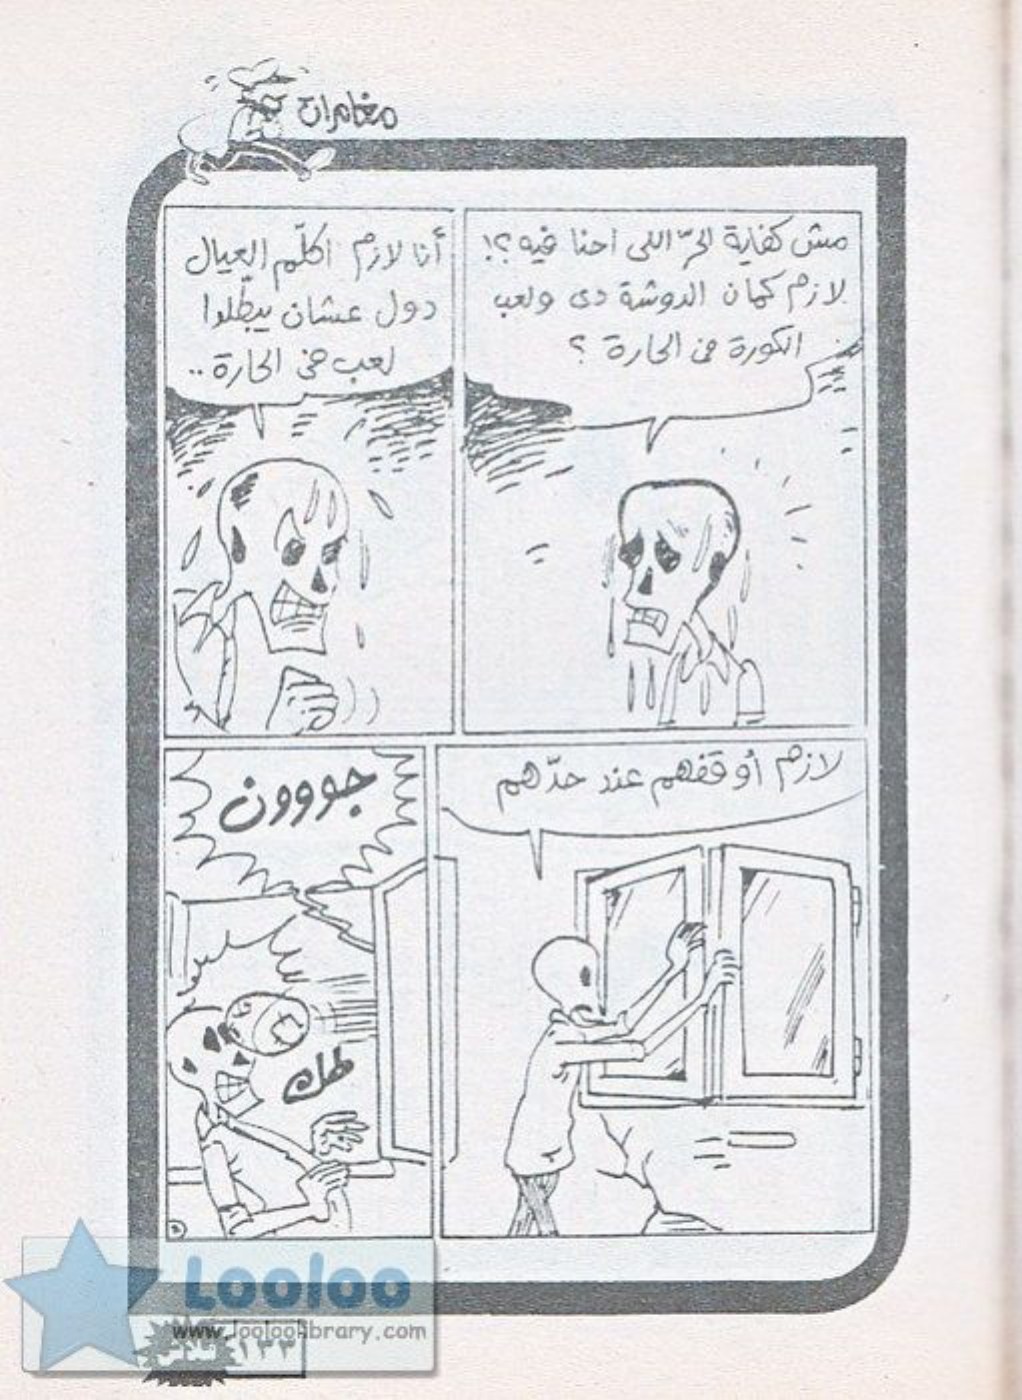 مغامرات
مش كفاية الحرّ اللى احنا فيه ؟!
لازم كمان الدوشة دى ولعب
الكورة فى الحارة ؟
أنا لازم اكلّم العيال
دول عشان يبطّلوا
لعب فى الحارة ..
لازم أوقفهم عند حدّهم
جوووون
طك
٢
Looloo
www.looloolibrary.com
١٣٣
فلاش